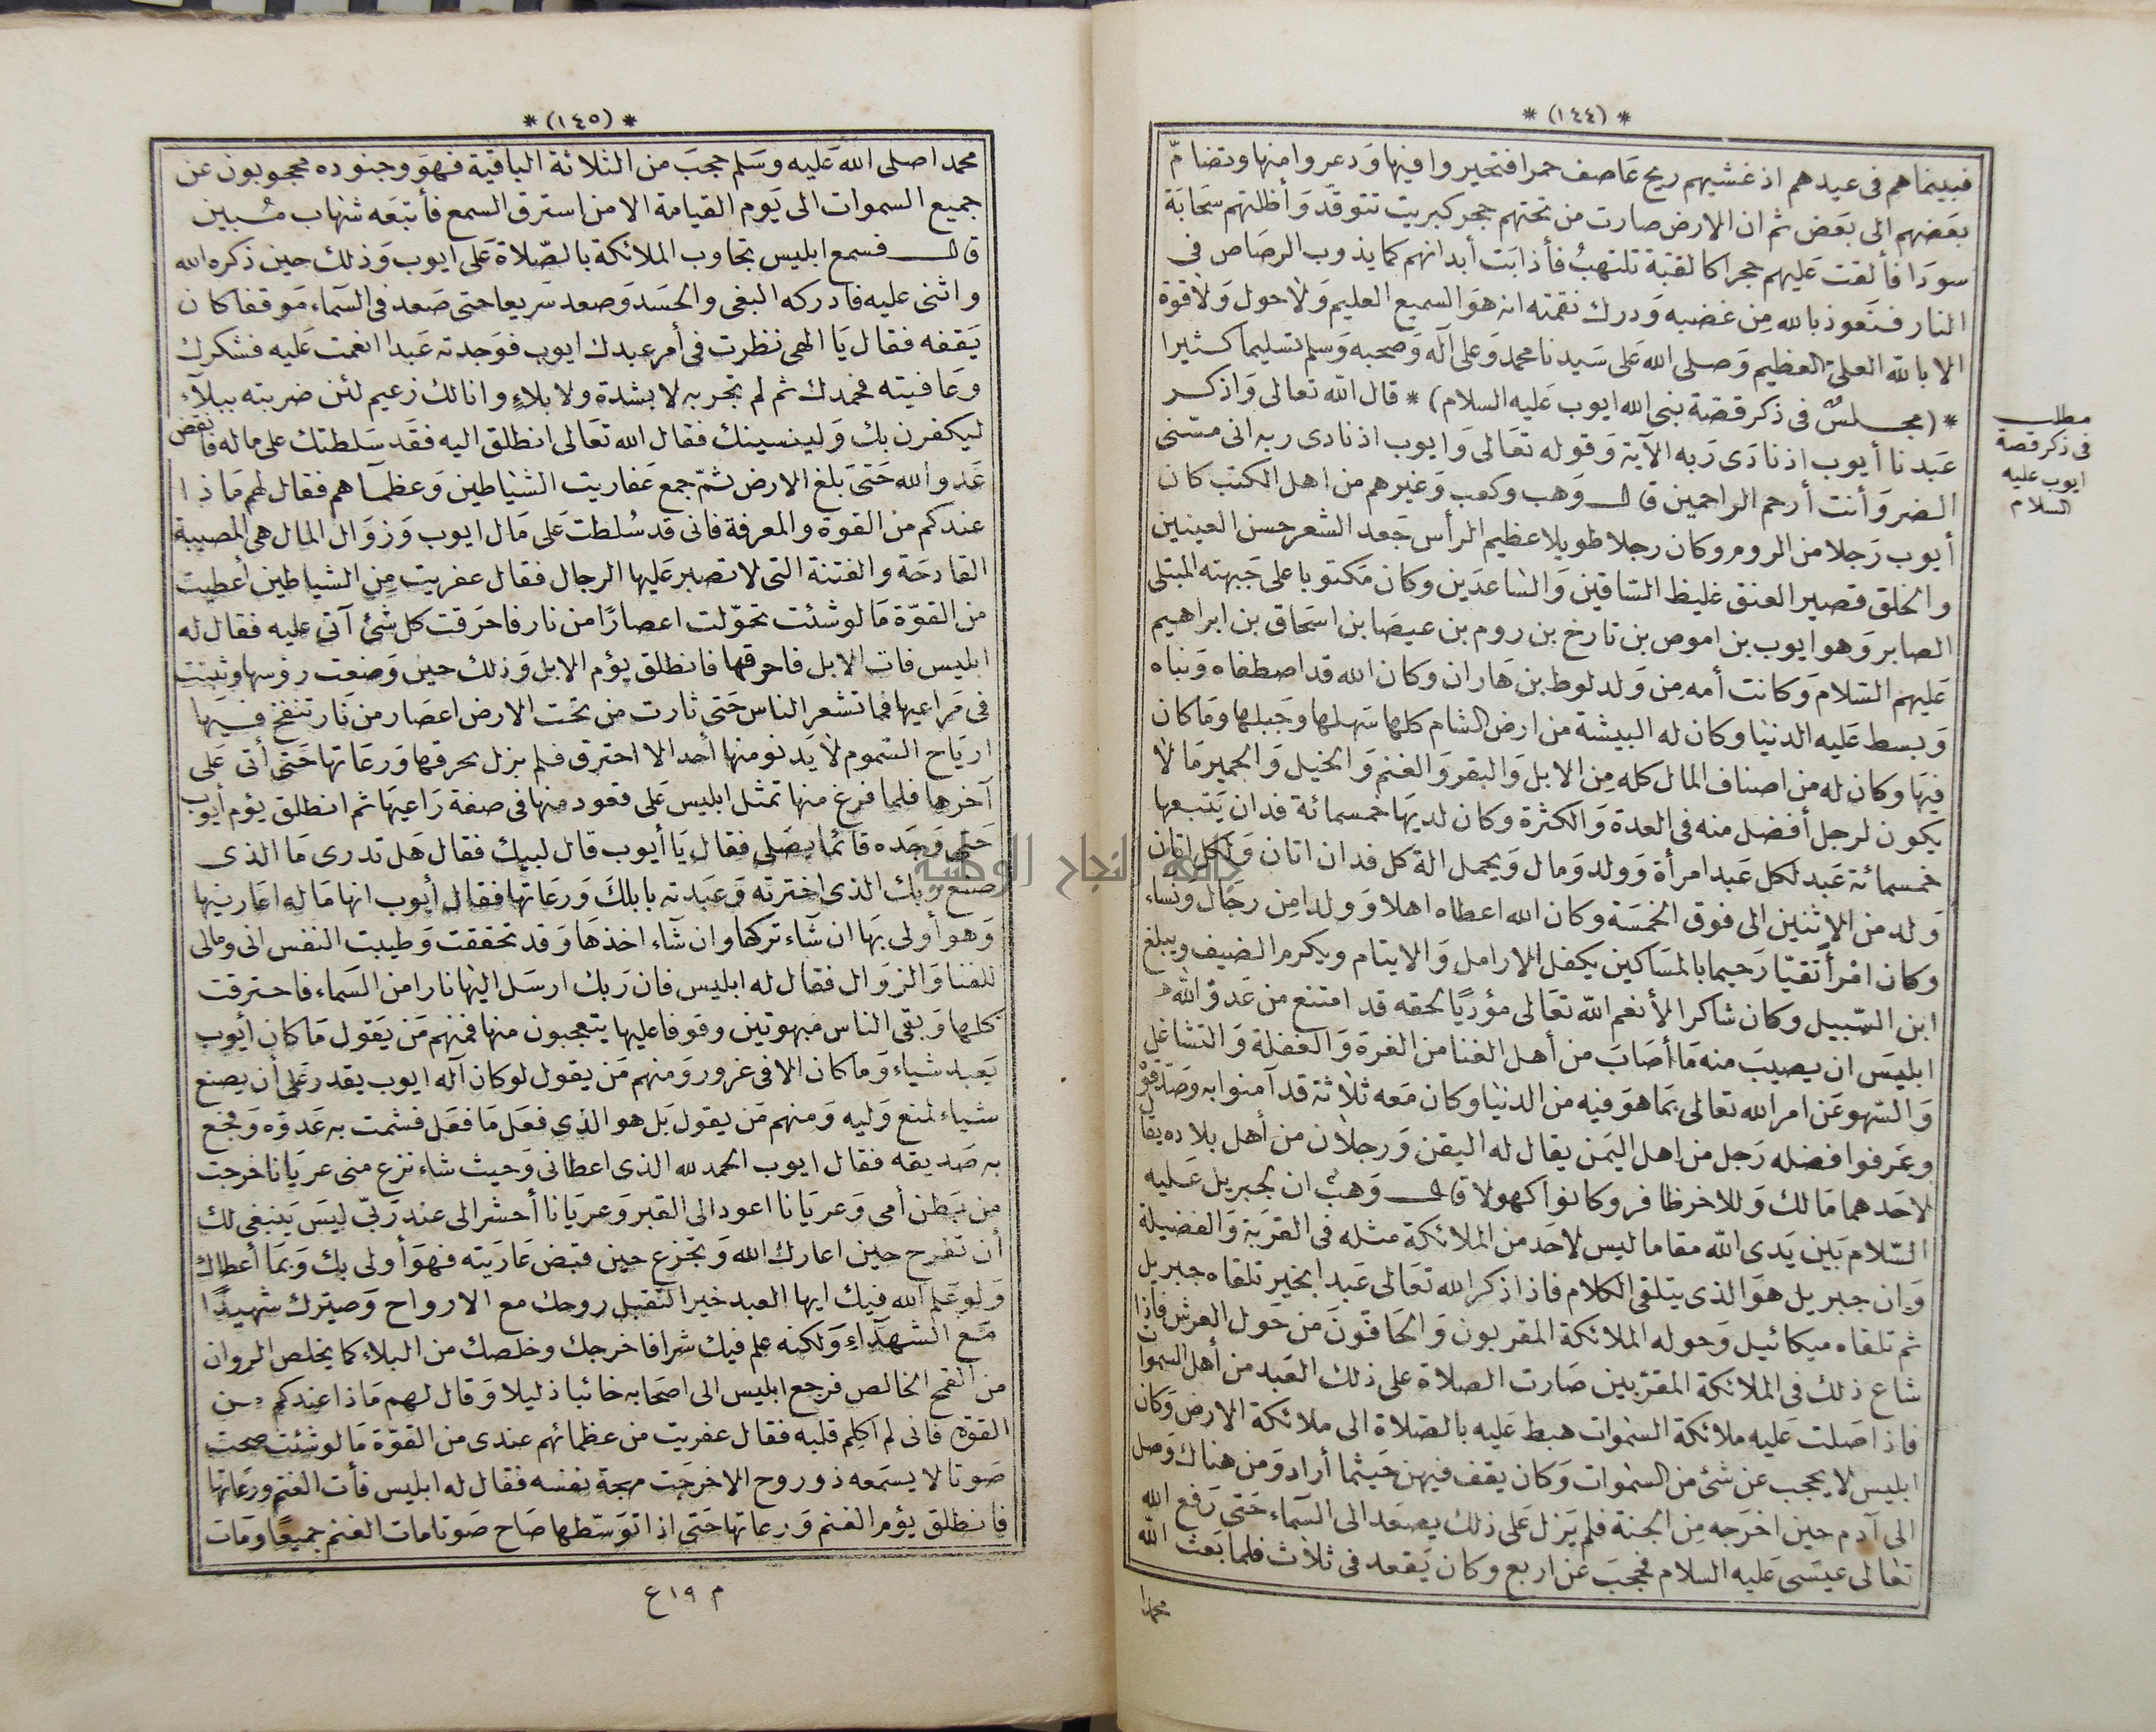 * (١٤٤) *
فبينما هم فى عيدهم اذ غشيهم ريح عاصف حمرا فتحيروا فيها ودعروا منها وتضامّ
بعضهم الى بعض ثم ان الارض صارت من تحتهم حجر كبريت تتوقد وأظلتهم سحابة
سودا فألقت عليهم حجرا كالقبة تلتهب فأذابت أبدانهم كما يذوب الرصاص فى
النار فنعوذ بالله من غضبه ودرك نقمته انه هو السميع العليم ولا حول ولا قوة
الا بالله العلىّ العظيم وصلى الله على سيدنا محمد وعلى آله وصحبه وسلم تسليما كثيرا
* (مجلسٌ فى ذكر قصة نبى الله ايوب عليه السلام) * قال الله تعالى واذكر
عبدنا أيوب اذ نادى ربه الآية وقوله تعالى وايوب اذ نادى ربه انى مسّنى
الضر وأنت أرحم الراحمين قال وهب وكعب وغيرهم من اهل الكتب كان
أيوب رجلا من الروم وكان رجلا طويلا عظيم الرأس جعد الشعر حسن العينين
والخلق قصير العنق غليظ الساقين والساعدين وكان مكتوبا على جبهته المبتلى
الصابر وهو ايوب بن اموص بن تارخ بن روم بن عيصا بن اسحاق بن ابراهيم
عليهم السلام وكانت أمه من ولد لوط بن هاران وكان الله قد اصطفاه ونباه
وبسط عليه الدنيا وكان له البيشة من ارض الشام كلها سهلها وجبلها وما كان
فيها وكان له من اصناف المال كله من الابل والبقر والغنم والخيل والحمير ما لا
يكون لرجل أفضل منه فى العدة والكثرة وكان لديها خمسمائة فدان يتبعها
خمسمائة عبد لكل عبد امرأة وولد ومال ويحمل الة كل فدان اتان ولكل اتان
ولد من الاثنين الى فوق الخمسة وكان الله اعطاه اهلا وولدا من رجال ونساء
وكان امرأً تقيّا رحيما بالمساكين يكفل الارامل والايتام ويكرم الضيف ويبلغ
ابن السّبيل وكان شاكرا لأنعم الله تعالى مؤديًا لحقه قد امتنع من عدوّ الله
ابليس ان يصيب منه ما أصاب من أهل الغنا من الغرة والغفلة والتشاغل
والسّهو عن امر الله تعالى بما هو فيه من الدنيا وكان معه ثلاثة قد آمنوا به وصدّقوْ
وعرفوا فضله رجل من اهل اليمن يقال له اليقن ورجلان من أهل بلاده يقال
لاحدهما مالك وللاخر ظافر وكانوا كهولا قال وهب ان لجبريل عليه
السّلام بين يدى الله مقاما ليس لاحد من الملائكة مثله فى القربة والفضيلة
وان جبريل هو الذى يتلقى الكلام فاذا ذكر الله تعالى عبدا بخير تلقاه جبريل
ثم تلقاه ميكائيل وحوله الملائكة المقربون والحافون من حول العرش فاذا
شاع ذلك فى الملائكة المقرّبين صارت الصلاة على ذلك العبد من أهل السموات
فاذا صلت عليه ملائكة السموات هبط عليه بالصلاة الى ملائكة الارض وكان
ابليس لا يحجب عن شئ من السموات وكان يقف فيهن حيثما أراد ومن هناك وصل
الى آدم حين اخرجه من الجنة فلم يزل على ذلك يصعد الى السماء حتى رفع الله
تعالى عيسى عليه السلام فحجب عن اربع وكان يقعد فى ثلاث فلما بعث الله
محمدا
مطلب
فى ذكر قصة
ايوب عليه
السلام
* (١٤٥) *
محمدا صلى الله عليه وسلم حجب من الثلاثة الباقية فهو وجنوده محجوبون عن
جميع السموات الى يوم القيامة الا من استرق السمع فأتبعه شهاب مُبين
قال فسمع ابليس تجاوب الملائكة بالصّلاة على ايوب وذلك حين ذكره الله
واثنى عليه فادركه البغى والحسد وصعد سريعا حتى صعد فى السماء موقفا كان
يقفه فقال يا الهى نظرت فى أمر عبدك ايوب فوجدته عبدا انعمت عليه فشكرك
وعافيته فحمدك ثم لم تجربه لا بشدة ولا بلاءٍ وانا لك زعيم لئن ضربته ببلاء
ليكفرن بك ولينسينك فقال الله تعالى انطلق اليه فقد سلطتك على ماله فانقض
عدو الله حتى بلغ الارض ثمّ جمع عفاريت الشياطين وعظماهم فقال لهم ماذا
عندكم من القوة والمعرفة فانى قد سُلطت على مال ايوب وزوال المال هى المصيبة
القادحة والفتنة التى لا تصبر عليها الرجال فقال عفريت من الشياطين أعطيت
من القوّة ما لو شئت تحوّلت اعصارًا من نار فاحرقت كل شئ آتى عليه فقال له
ابليس فات الابل فاحرقها فانطلق يؤم الابل وذلك حين وضعت رؤسها وثبتت
فى مراعيها فما تشعر الناس حتى ثارت من تحت الارض اعصار من نار تنفخ فيها
ارياح السموم لا يدنو منها أحد الا احترق فلم يزل يحرقها ورعاتها حتى أتى على
آخرها فلما فرغ منها تمثل ابليس على قعود منها فى صفة راعيها ثم انطلق يؤم أيوب
حتى وجده قائما يصلى فقال يا أيوب قال لبيك فقال هل تدرى ما الذى
صنع ربك الذى اخترته وعبدته بابلك ورعاتها فقال أيوب انها ماله اعارنيها
وهو أولى بها ان شآء تركها وان شآء اخذها وقد تحققت وطيبت النفس انى ومالى
للفنا والزوال فقال له ابليس فان ربك ارسل اليها نارا من السماء فاحترقت
كلها وبقى الناس مبهوتين وقوفا عليها يتعجبون منها فمنهم من يقول ما كان أيوب
يعبد شياء وما كان الا فى غرور ومنهم من يقول لو كان آله ايوب يقدر على أن يصنع
شياء لمنع وليه ومنهم من يقول بل هو الذى فعل ما فعل فشمت به عدوّه وفجع
به صديقه فقال ايوب الحمد لله الذى اعطانى وحيث شاء نزع منى عريانا خرجت
من بطن أمى وعريانا اعود الى القبر وعريانا أحشر الى عند ربّى ليس ينبغى لك
أن تفرح حين اعارك الله وتجزع حين قبض عاريته فهو أولى بك وبما أعطاك
ولو علم الله فيك ايها العبد خيرا لتقبل روحك مع الارواح وصيّرك شهيدًا
مع الشهدآء ولكنه علم فيك شرا فاخرجك وخلصك من البلاء كما يخلص الروان
من القمح الخالص فرجع ابليس الى اصحابه خائبا ذليلا وقال لهم ماذا عندكم من
القوة فانى لم اكلم قلبه فقال عفريت من عظمائهم عندى من القوّة ما لو شئت صحت
صوتا لا يسمعه ذو روح الا خرجت مهجة نفسه فقال له ابليس فأت الغنم ورعاتها
فانطلق يؤم الغنم ورعاتها حتى اذا توسّطها صاح صوتا مات الغنم جميعًا ومات
م ١٩ ع
جامعة النجاح الوطنية